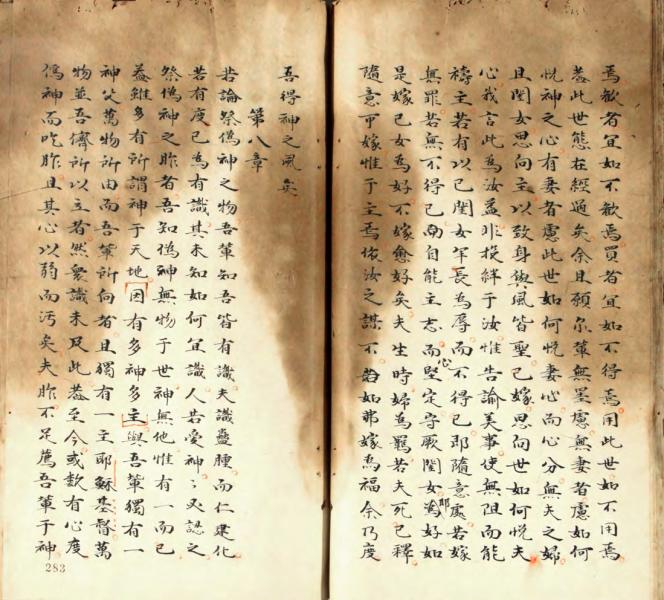 焉歡者宜如不歡焉買者宜如不得焉用此世如不用焉
蓋此世態在經過矣余且願爾輩無罣慮無妻者慮如何
悅神之心有妻者慮此世如何悅妻心而心分無夫之婦
且閨女思向主以致身與風皆聖已嫁思向世如何悅夫
心我言此為汝益非投絆于汝惟告諭美事使無阻而能
禱主若有以己閨女年長為辱而不得已即隨意處若嫁
無罪若無不得已而自能主志而心堅定守厥閨女即好如
是嫁己女為好不嫁愈好矣夫生時婦為羈若夫死已釋
隨意可嫁惟于主焉汝之謀不若如弗嫁為福余乃度
吾得神之風矣
第八章
若論祭偽神之物吾輩知吾皆有識夫識蠱腫而仁建化
若有度已為有識其未知如何宜識人若愛神〻必認之
祭偽神之胙者吾知偽神無物于世神無他惟有一而已
蓋雖多有所謂神于天地因有多神多主與吾輩獨有一
神父萬物所由而吾輩所向者且獨有一主耶穌基督萬
物並吾儕所以立者然衆識未及此蓋至今或數有心度
偽神而吃胙且其心以弱而污矣夫胙不足薦吾輩于神
283